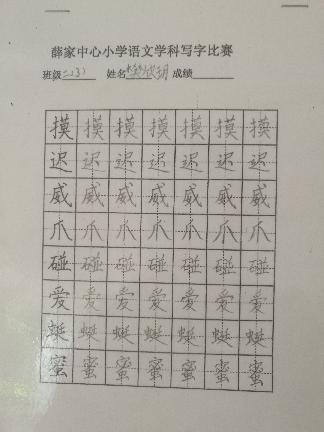 薛家中心小学语文学科写字比赛
班级二(3) 姓名樊欣玥 成绩
摸摸摸摸摸摸摸
迟迟迟迟迟迟迟
威威威威威威威
爪爪爪爪爪爪爪
碰碰碰碰碰碰碰
爱爱爱爱爱爱爱
蜓蜓蜓蜓蜓蜓蜓
蜜蜜蜜蜜蜜蜜蜜